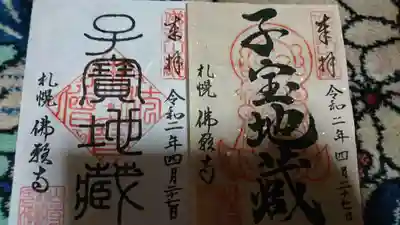 奉拝
子宝地蔵
札幌 佛願寺
令和二年四月二十七日
奉拝
子寶地蔵
札幌 佛願寺
令和二年四月二十七日